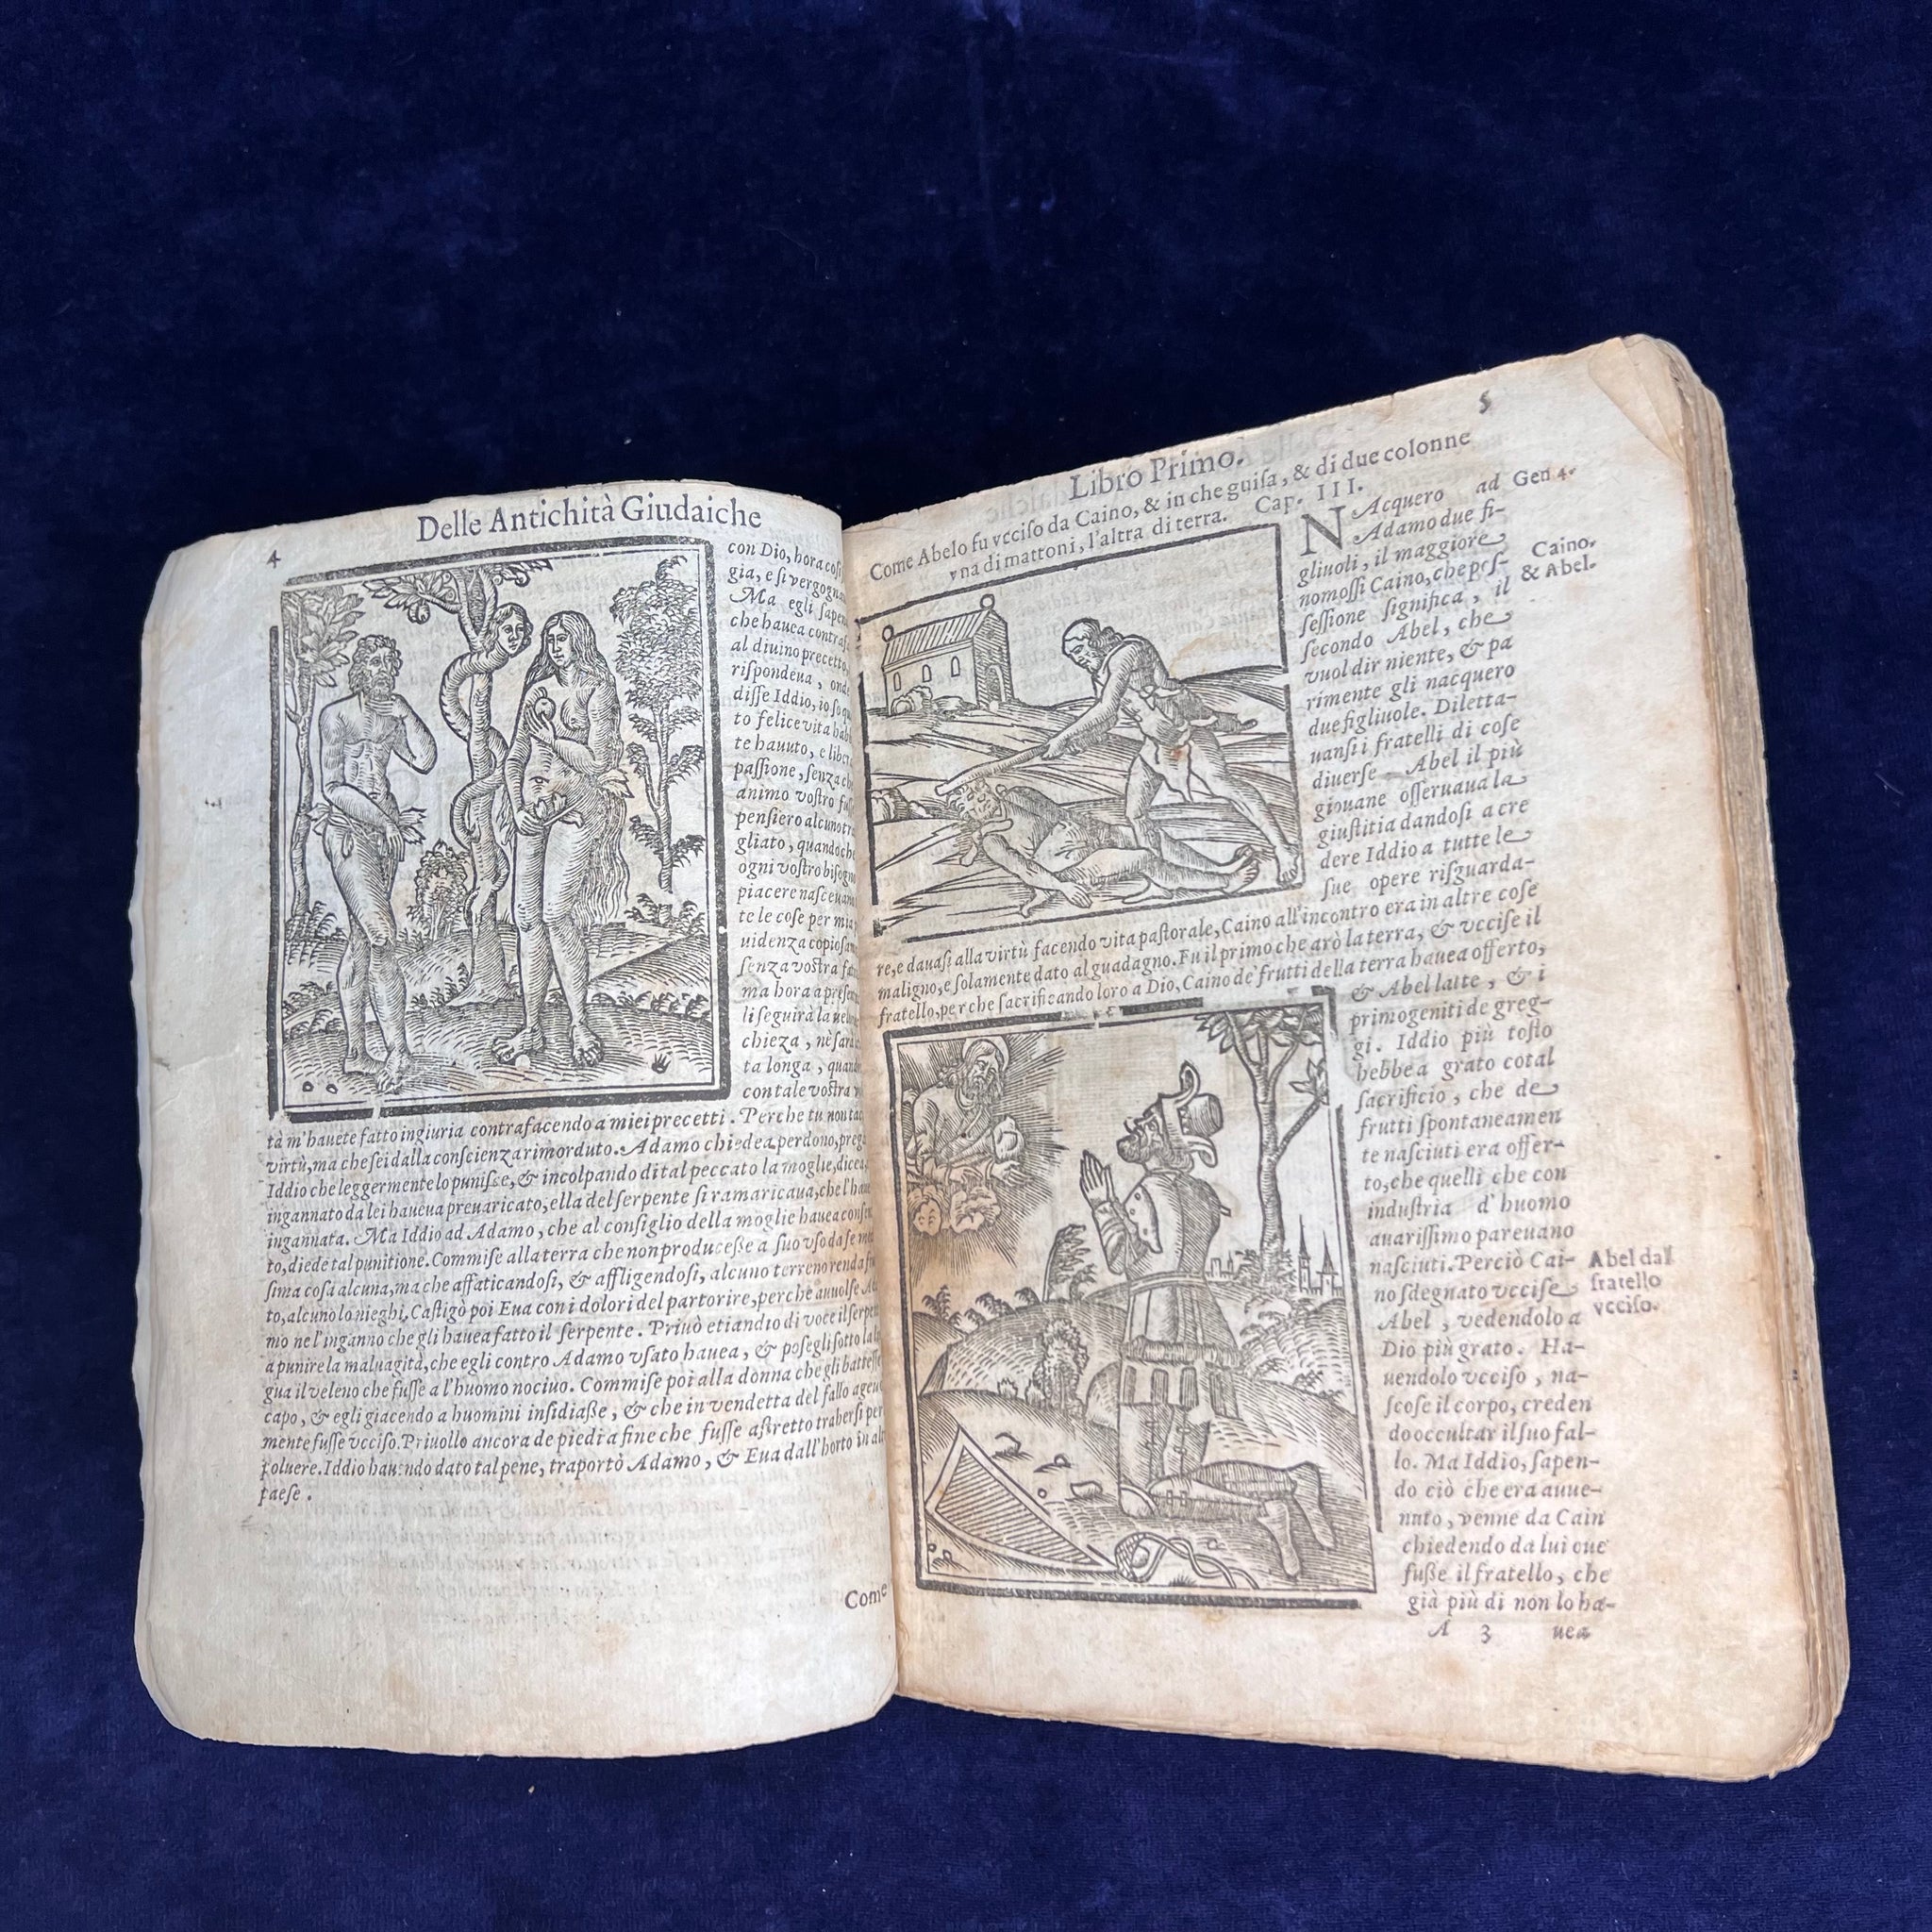 4
Delle Antichità Giudaiche
con Dio, hora
gia, e si vergogna
Ma egli
che hauea
al diuino precetto
rispondeua, onde
disse Iddio, io
to felice vita
te hauuto, e
passione, senza
animo vostro
pensiero alcuno
gliato, quando
ogni vostro
piacere
te le cose per mia
uidenza
senza vostra
ma hora
li seguirà la
chiezza, nè sarà
ta longa,
con tale vostra
tà m'hauete fatto ingiuria contrafacendo a miei precetti. Perche tu non
virtù, ma che sei dalla conscienza rimorduto. Adamo chiedea perdono,
Iddio che leggermente lo punisse, & incolpando di tal peccato la moglie,
ingannato da lei haueua preuaricato, ella del serpente si ramaricaua, che
ingannata. Ma Iddio ad Adamo, che al consiglio della moglie hauea
to, diede tal punitione. Commise alla terra che non producesse a suo vso da se
sima cosa alcuna, ma che affaticandosi, & affligendosi, alcuno terreno renda
to, alcuno lo nieghi. Castigò poi Eua con i dolori del partorire, perchè auuolse
mo nel'inganno che gli hauea fatto il serpente. Priuò etiandio di voce il
a punire la maluagità, che egli contro Adamo vsato hauea, & posegli sotto la
gua il veleno che fusse a l'huomo nociuo. Commise poi alla donna che gli
capo, & egli giacendo a huomini insidiasse, & che in vendetta del fallo
mente fusse vcciso. Priuollo ancora de piedi a fine che fusse astretto trahersi per
poluere. Iddio hauendo dato tal pene, traportò Adamo, & Eua dall'horto in
paese.
Come
5
Libro Primo.
Come Abelo fu vcciso da Caino, & in che guisa, & di due colonne
vna di mattoni, l'altra di terra. Cap. III.
NAcquero ad
Adamo due fi-
gliuoli, il maggiore
nomossi Caino, che pos-
sessione significa, il
secondo Abel, che
vuol dir niente, & pa
rimente gli nacquero
due figliuole. Diletta-
uansi i fratelli di cose
diuerse Abel il più
giouane osseruaua la
giustitia dandosi a cre
dere Iddio a tutte le
sue opere risguarda-
re, e dauasi alla virtù facendo vita pastorale, Caino all'incontro era in altre cose
maligno, e solamente dato al guadagno. Fu il primo che arò la terra, & vccise il
fratello, perche sacrificando loro a Dio, Caino de' frutti della terra hauea offerto,
& Abel latte, & i
primogeniti de greg-
gi. Iddio più tosto
hebbe a grato cotal
sacrificio, che de
frutti spontaneamen
te nasciuti era offer-
to, che quelli che con
industria d'huomo
auarissimo pareuano
nasciuti. Perciò Cai-
no sdegnato vccise
Abel, vedendolo a
Dio più grato. Ha-
uendolo vcciso, na-
scose il corpo, creden
do occultar il suo fal-
lo. Ma Iddio, sapen-
do ciò che era auue-
nuto, venne da Cain
chiedendo da lui oue
fusse il fratello, che
già più dì non lo ha-
A 3 uea
Gen 4.
Caino.
& Abel.
Abel dal
fratello
vcciso.